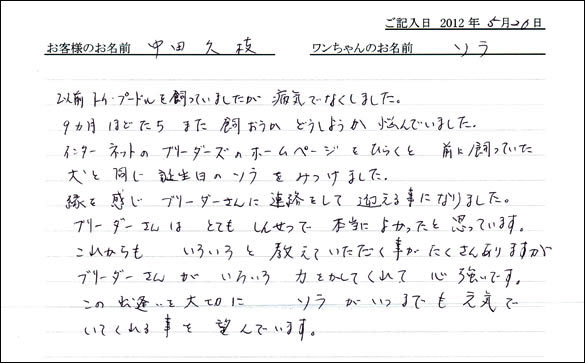 ご記入日 2012 年 5月20日
お客様のお名前 中田 久枝 ワンちゃんのお名前 ソラ
以前 トイ・プードルを飼っていましたが 病気でなくしました。
9カ月 ほどたち また 飼おうか どうしようか 悩んでいました。
インターネットの ブリーダーズの ホームページ を ひらくと 前に飼っていた
犬と 同じ 誕生日の ソラ を みつけました。
縁を 感じ ブリーダーさんに 連絡をして 迎える事になりました。
ブリーダーさんは とても しんせつで 本当に よかったと 思っています。
これからも いろいろと 教えていただく事が たくさんありますが
ブリーダーさん が いろいろ 力をかしてくれて 心強いです。
この 出逢いを 大切に ソラ が いつまでも 元気で
いてくれる事を 望んでいます。